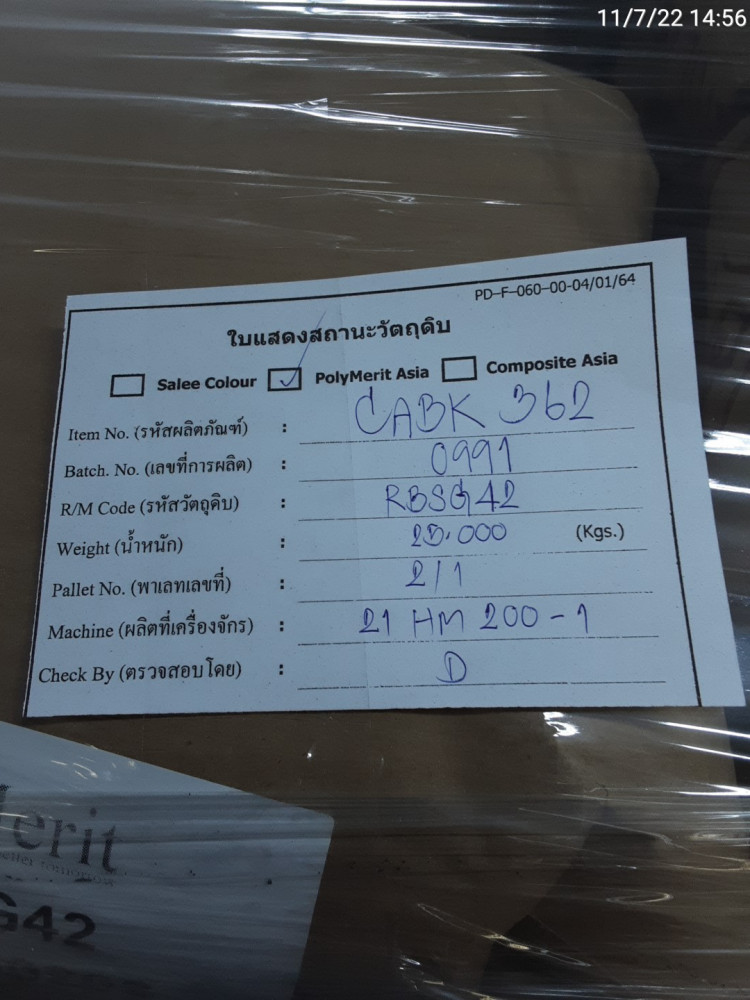 11/7/22 14:56
PD-F-060-00-04/01/64
ใบแสดงสถานะวัตถุดิบ
Salee Colour PolyMerit Asia Composite Asia
Item No. (รหัสผลิตภัณฑ์) : CABK 362
Batch. No. (เลขที่การผลิต) : 0991
R/M Code (รหัสวัตถุดิบ) : RBSG42
Weight (น้ำหนัก) : 25.000 (Kgs.)
Pallet No. (พาเลทเลขที่) : 2/1
Machine (ผลิตที่เครื่องจักร) : 21 HM 200-1
Check By (ตรวจสอบโดย) : D
Merit
G42